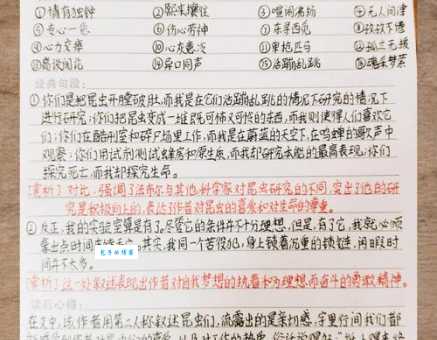 ①情有独钟 ②熙来攘往 ③喧闹 ④无人问津
⑤专心一意 ⑥伤心劳神 ⑦东寻西觅
⑧心力交瘁 ⑩心灰意冷 ⑪单枪匹马 ⑫孤立无援
异口同声 ⑮活蹦乱跳 ⑯魂牵梦萦
经典句段:
①你们是把昆虫开膛破肚,而我是在它们活蹦乱跳的情况下研究的情况下
进行研究;你们把昆虫变成一堆既可怖又可怜的东西,而我则使得人们喜欢它
们;你们在酷刑室和碎尸场里工作,而我是在蔚蓝的天空下,在鸣蝉的歌声中
观察;你们用试剂测试蜂房和原生质,而我却研究本能的最高表现;你们
探究死亡,而我却探究生命。
赏析:对比,强调了法布尔与其他科学家对昆虫研究的不同,突出了他的研
究是积极向上的,表达了作者对昆虫的喜爱和对生命的尊重。
②反正,我的实验室算是有了。尽管它的条件并不十分理想,但是,有了它,我就必须
拿出点时间 其实,我同一个苦役犯,身上锁着沉重的锁链,闲暇时
间并不太多。
赏析:这一处叙述表现出作者对自我梦想的执着和为理想而奋斗的勇敢精神。
读后心得:
在文中,该作者用第二人称叙述昆虫们,流露出的是亲切感,字里行间我们都